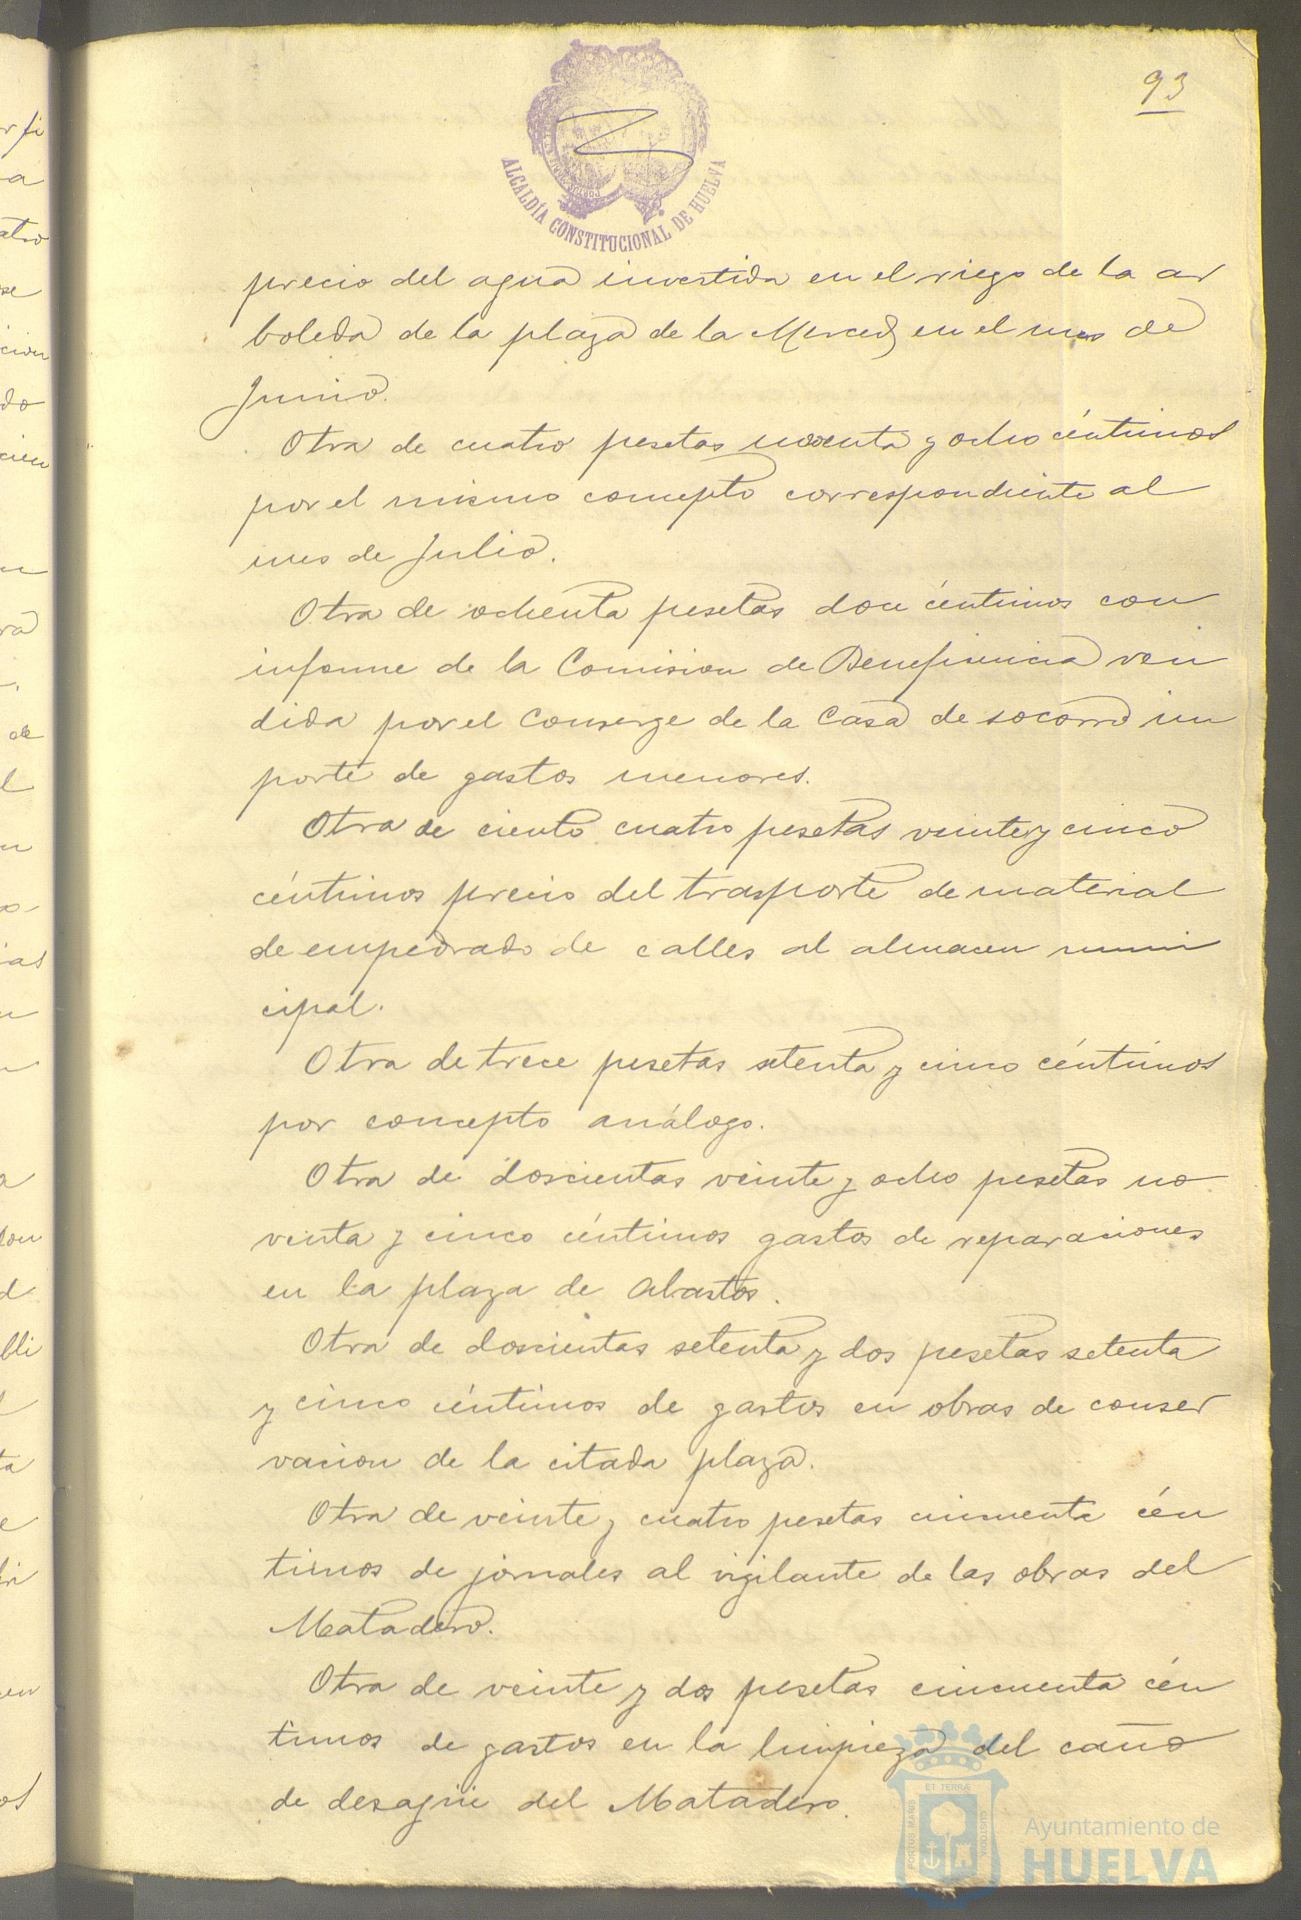 93
ALCALDÍA CONSTITUCIONAL DE HUELVA
precio del agua invertida en el riego de la ar
boleda de la plaza de la Merced, en el mes de
Junio.
Otra de cuatro pesetas noventa y ocho céntimos
por el mismo concepto correspondiente al
mes de Julio.
Otra de ochenta pesetas doce céntimos con
informe de la Comision de Beneficencia ren
dida por el Conserge de la Casa de socorro im
porte de gastos menores.
Otra de ciento cuatro pesetas veinte y cinco
céntimos precio del trasporte de material
de empedrado de calles al almacen muni
cipal.
Otra de trece pesetas setenta y cinco céntimos
por concepto análogo.
Otra de doscientas veinte y ocho pesetas no
venta y cinco céntimos gastos de reparaciones
en la plaza de Abastos.
Otra de doscientas setenta y dos pesetas setenta
y cinco céntimos de gastos en obras de conser
vacion de la citada plaza.
Otra de veinte y cuatro pesetas cincuenta cén
timos de jornales al vigilante de las obras del
Matadero.
Otra de veinte y dos pesetas cincuenta cén
timos de gastos en la limpieza del caño
de desagüe del Matadero.
PORTUS MARIS ET TERRAE CUSTODIA
Ayuntamiento de
HUELVA